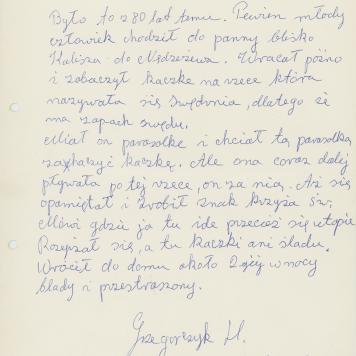 Było to z 80 lat temu. Pewien młody
człowiek chodził do panny blisko
Kalisza do Nędzeżewa. Wracał późno
i zobaczył kaczkę na rzece która
nazywała się Swędrnia, dlatego że
ma zapach swędu.
Miał on parasolkę i chciał tą parasolką
zahaczyć kaczkę. Ale ona coraz dalej
pływała po tej rzece, on za nią. Aż się
opamiętał i zrobił znak krzyża św,
Mówi gdzie ja tu ide przecież się utopię
Rozejżał się, a tu kaczki ani śladu.
Wrócił do domu około 2giej w nocy
blady i przestraszony.
Grzegorczyk H.